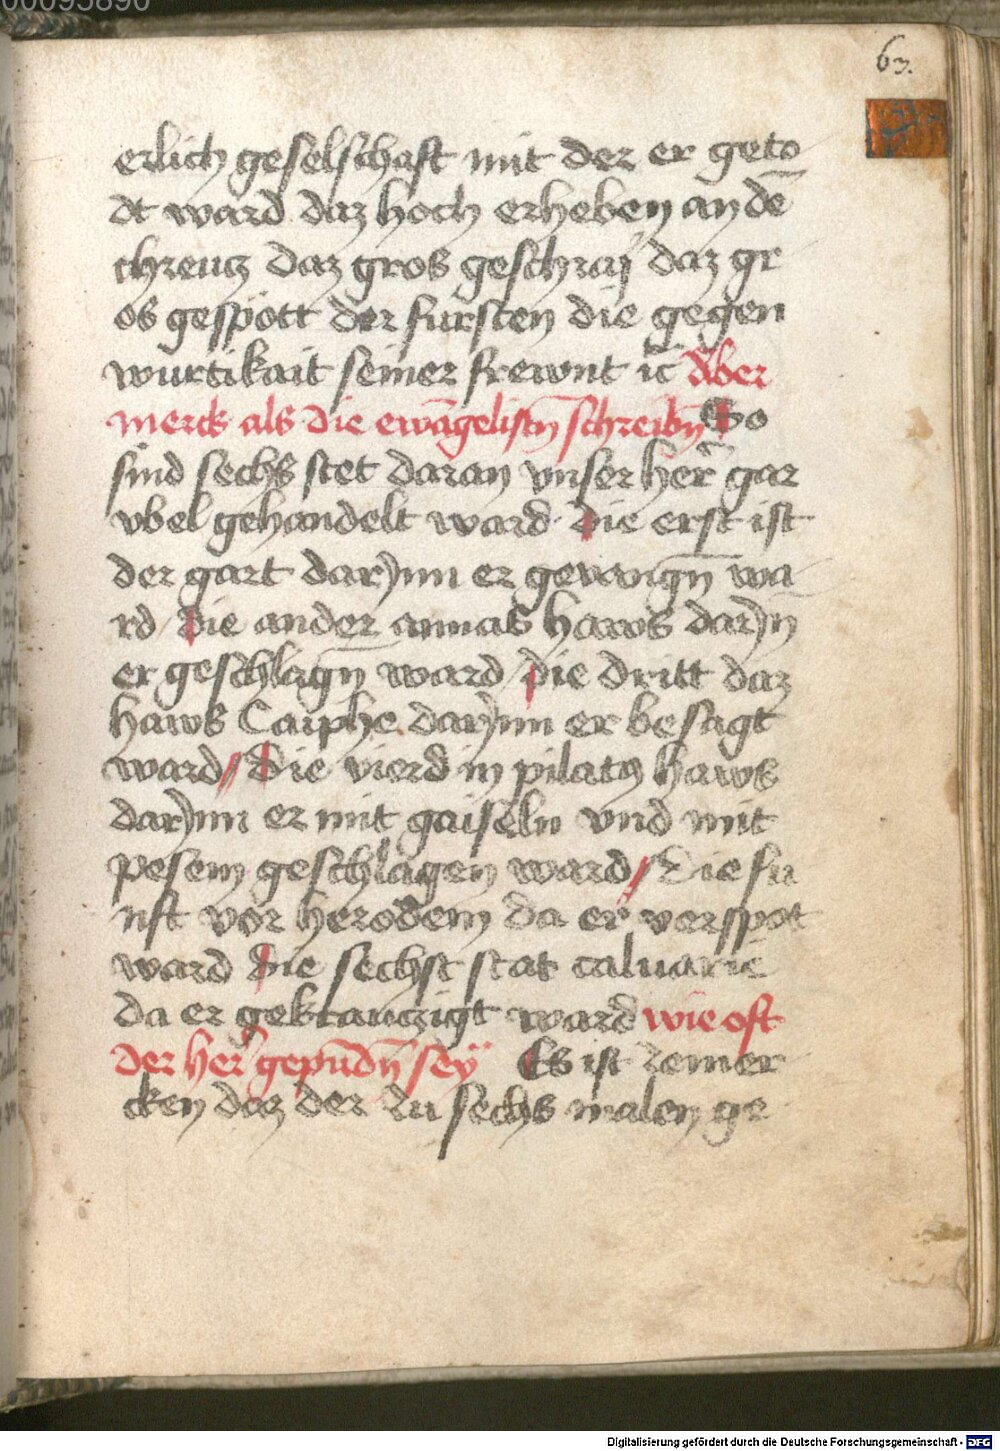 00095890
63.
erlich geselschaft mit der er geto
dt ward daz hoch erheben an dē
chreucz daz gros geschraÿ daz gr
os gespött der fursten die gegen
wurtikait seiner frewnt ic̄ Aber
merck als die ewāgelistn̄ schreibn̄ So
sind sechs stet daran vnser her̄ gar
vbel gehandelt ward die erst ist
der gart darynn er gewangn̄ wa
rd die ander annas haws daryn̄
er geschlagn̄ ward die dritt daz
haws Caiphe darynn er besagt
ward die vierd in pilatus haws
darynn er mit gaiseln vnd mit
pesem geschlagen ward Die fu
nft vor herodem da er verspot
ward die sechst stat caluarie
da er gekrauczigt ward wie oft
der her̄ gepūdn̄ seÿ Es ist zemer
cken daz der zu sechs malen ge
Digitalisierung gefördert durch die Deutsche Forschungsgemeinschaft - DFG